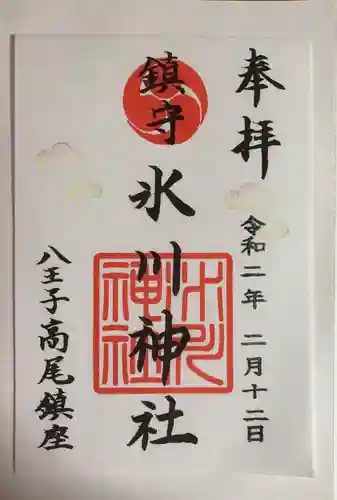 奉拝
令和二年 二月十二日
鎮守
氷川神社
氷川神社
八王子高尾鎮座